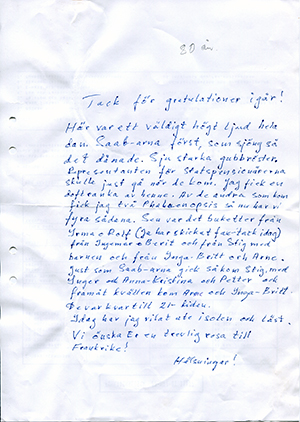 80 år
Tack för gratulationer igår!
Här var ett väldigt högt ljud hela
dan. Saab-arna först, som sjöng så
det dånade. Sju starka gubbröster.
Representanten för Statspensionärerna
skulle just gå när de kom. Jag fick en
doftranka av henne. Av de andra som kom
fick jag två Phalaenopsis så nu har vi
fyra sådana. Sen var det buketter från
Irma o Rolf (Ja har skickat fax-tack idag)
från Ingemar o Berit och från Stig med
barnen och från Inga-Britt och Arne.
Just som Saab-arna gick så kom Stig, med
Inger och Anna-Kristina och Petter och
framåt kvällen kom Arne och Inga-Britt.
De var kvar till 21-tiden.
Idag har jag vilat ute i solen och läst.
Vi önska Er en trevlig resa till
Frankrike!
Hälsningar!